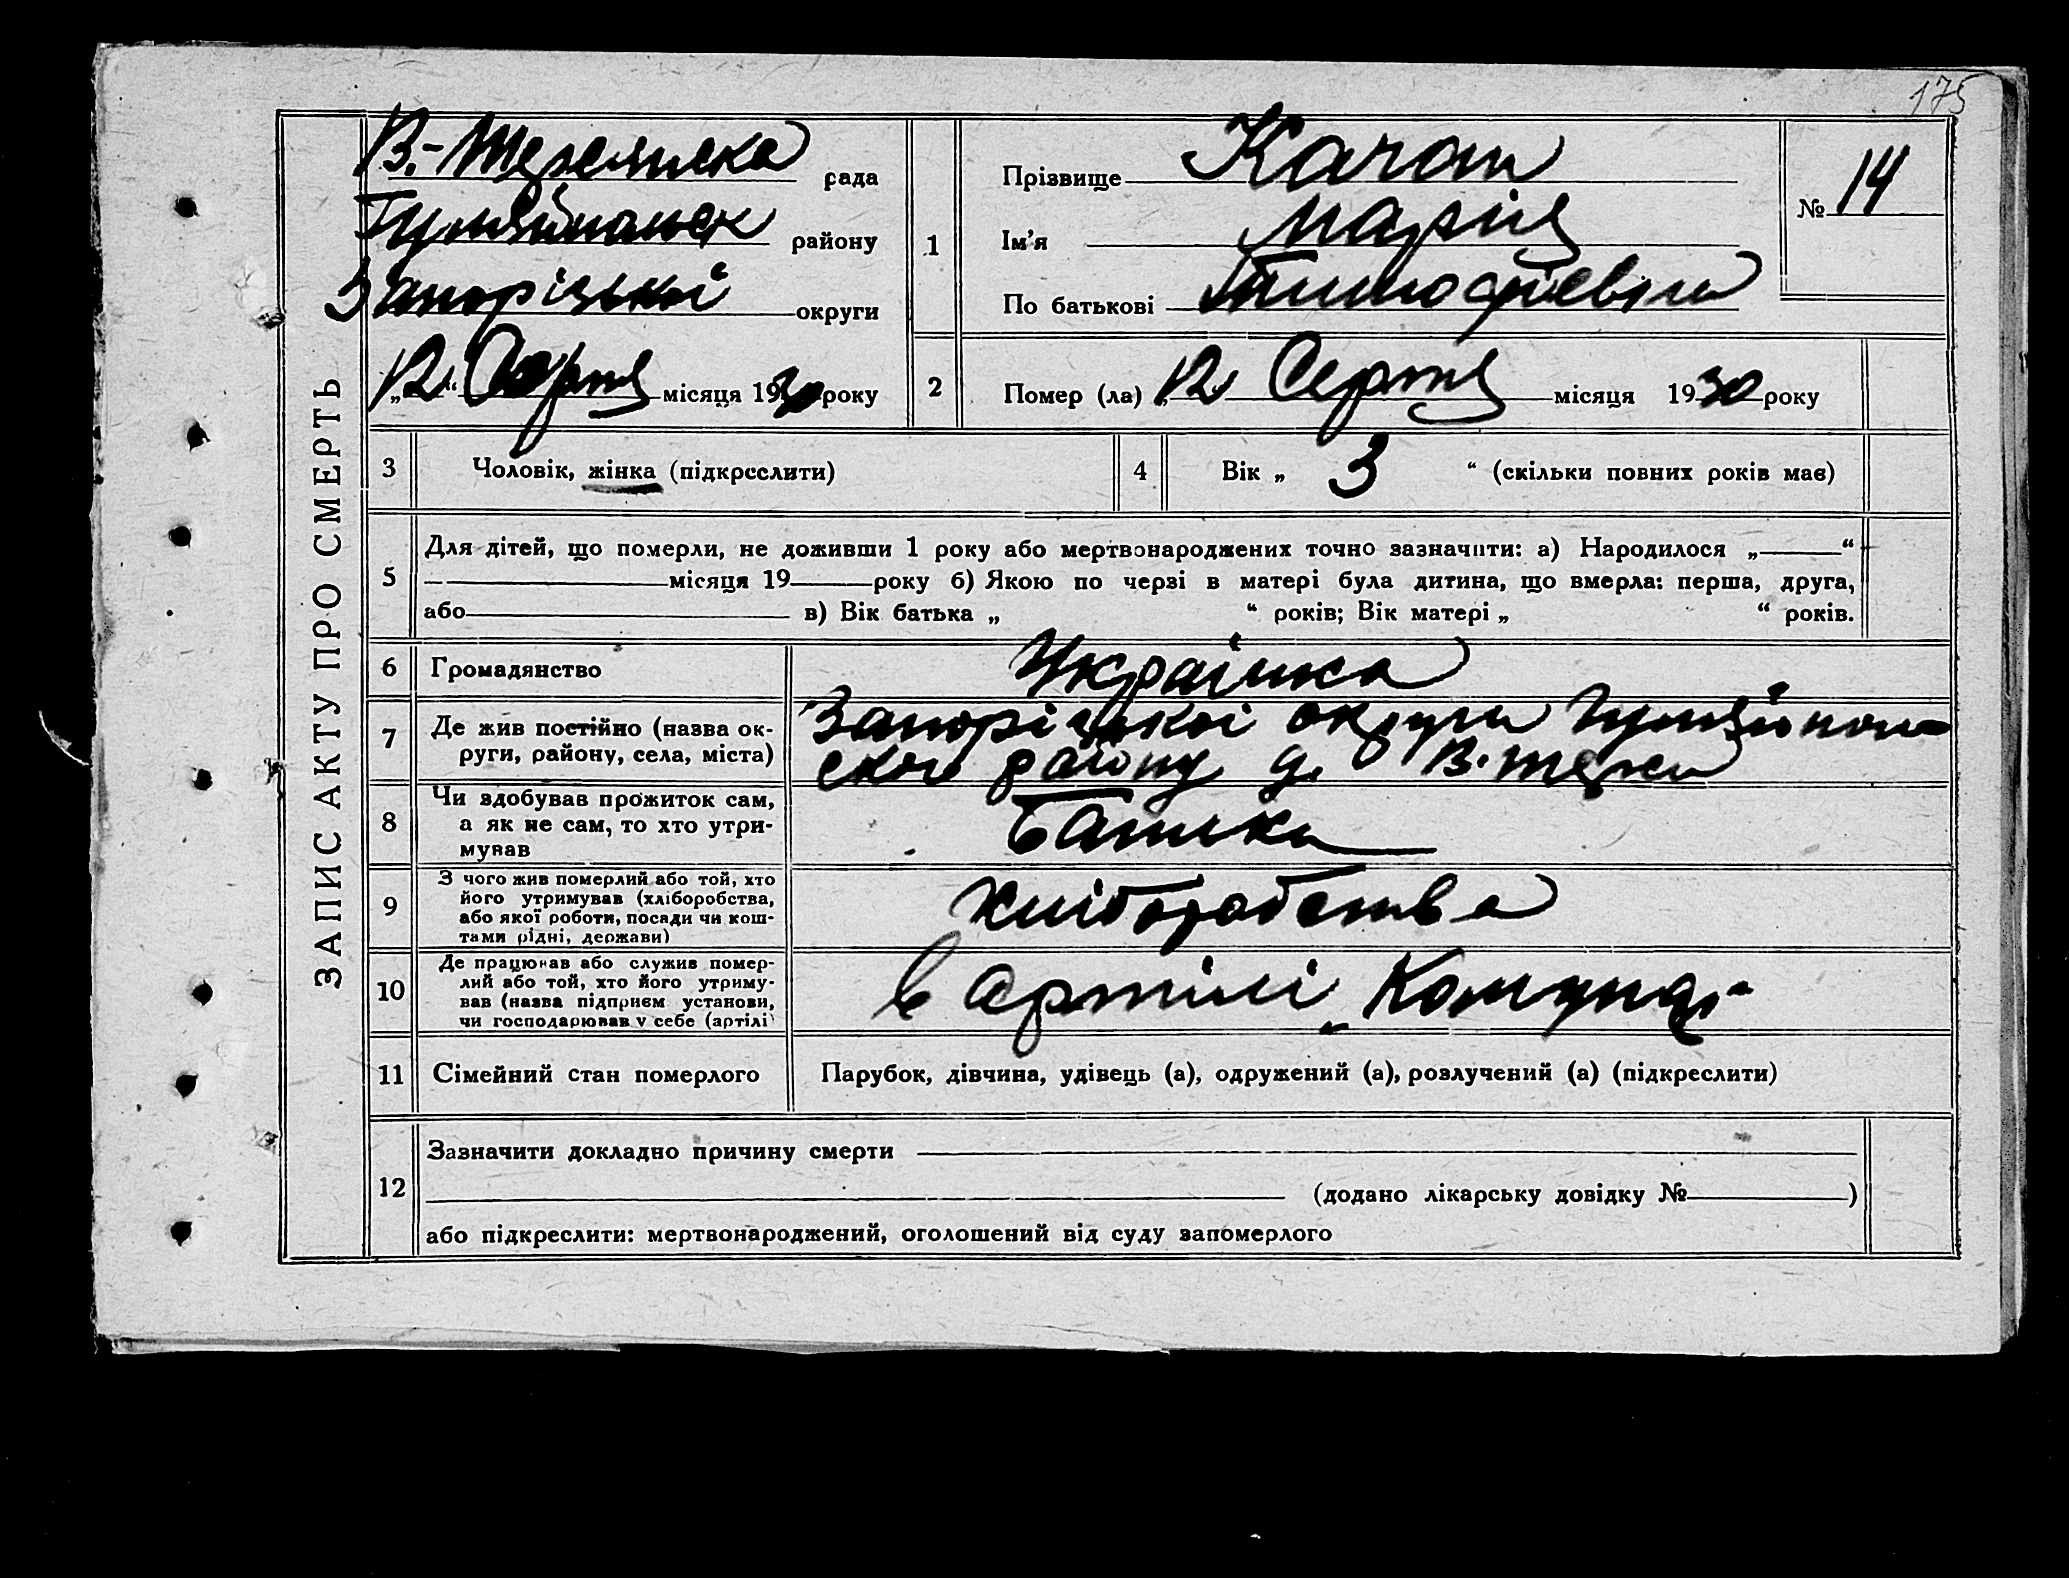 175
ЗАПИС АКТУ ПРО СМЕРТЬ
В.-Терсянска рада
Гуляйпольск району
Запорізької округи
„12“ Серпня місяця 1930 року
1
Прізвище Качан
Ім'я Марія
По батькові Тимофієвни
№ 14
2
Помер (ла) „12 Серпня місяця 1930 року
3 Чоловік, жінка (підкреслити)
4 Вік „ 3 “ (скільки повних років має)
5
Для дітей, що померли, не доживши 1 року або мертвонароджених точно зазначити: а) Народилося „ “
місяця 19 року б) Якою по черзі в матері була дитина, що вмерла: перша, друга,
або в) Вік батька „ “ років; Вік матері „ “ років.
6 Громадянство Українка
7 Де жив постійно (назва ок-
руги, району, села, міста)
Запорізької округи Гуляйполь
ского району В. Терси
8 Чи здобував прожиток сам,
а як не сам, то хто утри-
мував
Батька
9 З чого жив померлий або той, хто
його утримував (хліборобства,
або якої роботи, посади чи кош-
тами рідні, держави)
Хліборобства
10 Де працював або служив помер-
лий або той, хто його утриму-
вав (назва підприєм установи,
чи господарював у себе (артілі)
в артілі „Комунар“
11 Сімейний стан померлого
Парубок, дівчина, удівець (а), одружений (а), розлучений (а) (підкреслити)
12
Зазначити докладно причину смерти
(додано лікарську довідку № )
або підкреслити: мертвонароджений, оголошений від суду запомерлого